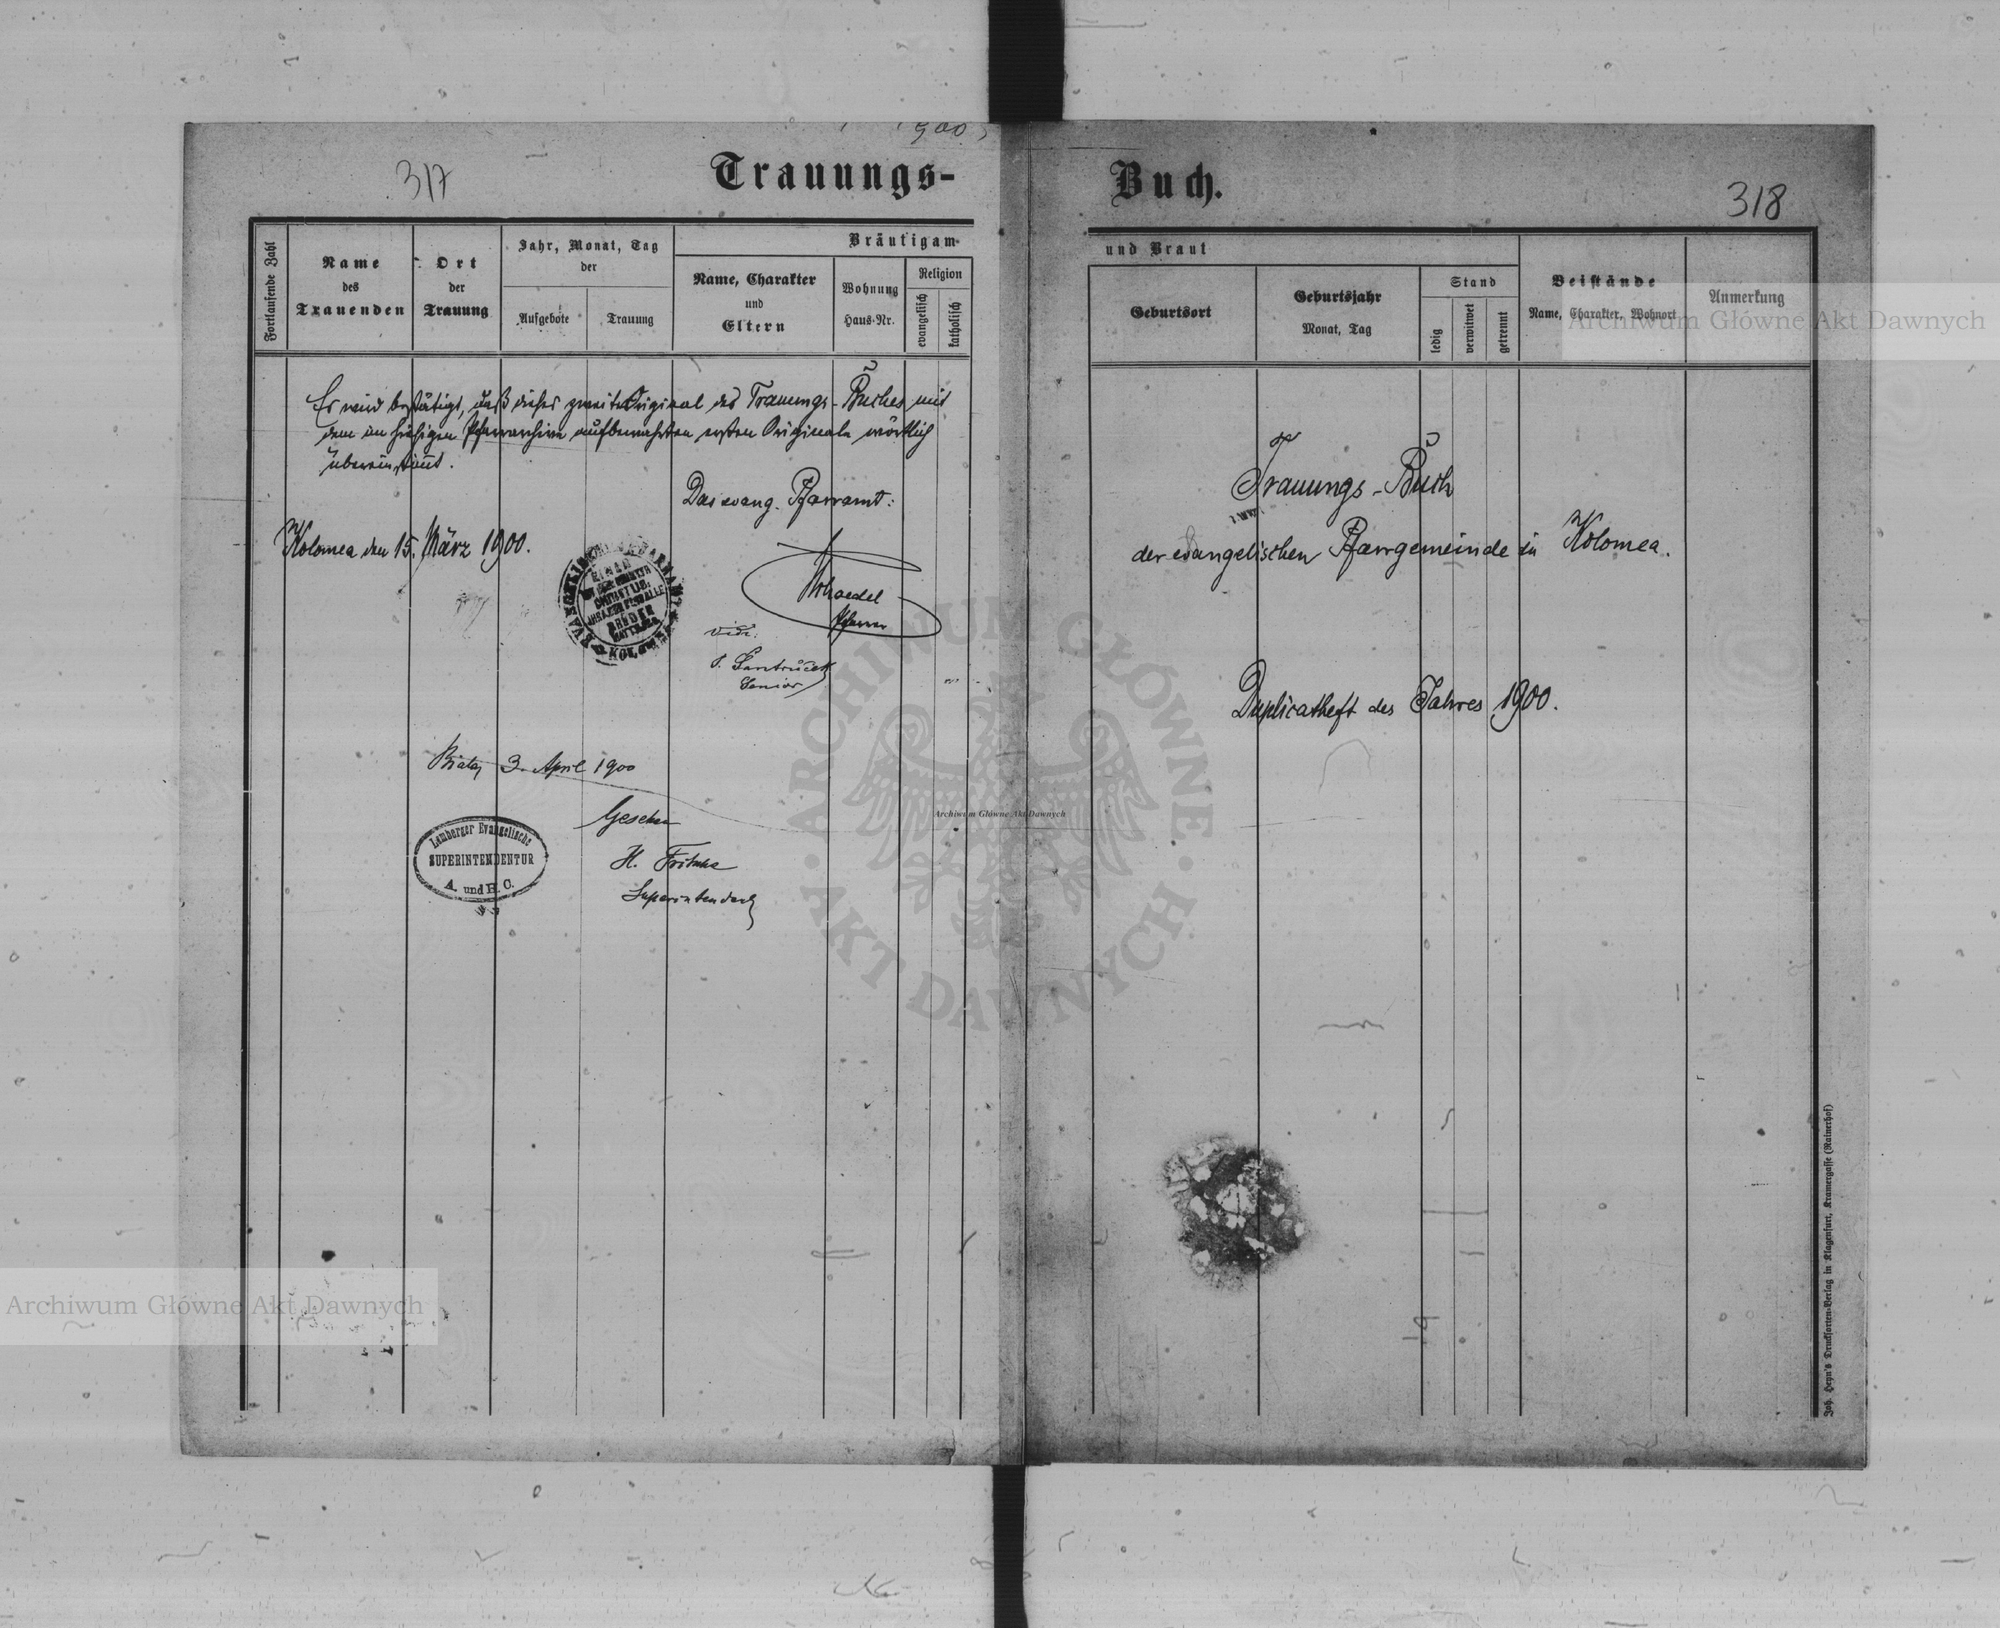 1900
317
Trauungs-
Fortlaufende Zahl
Name
des
Trauenden
Ort
der
Trauung
Jahr, Monat, Tag
der
Aufgebote
Trauung
Bräutigam
Name, Charakter
und
Eltern
Wohnung
Haus-Nr.
Religion
evangelisch
katholisch
Es wird bestätigt, daß dieses zweite Original des Trauungs-Buches mit
dem im hiesigen Pfarrarchive aufbewahrten ersten Originale wörtlich
übereinstimt.
Das evang. Pfarramt:
Kolomea den 15. März 1900.
EINER
IST EUER MEISTER
CHRISTUS:
IHR ABER SEID ALLE
BRÜDER
Pfarrer
vidi.
Senior
Biala, 3. April 1900
Gesehen
H. Fritsche
Superintendent
Lemberger Evangelische
SUPERINTENDENTUR
A. und H. C.
Buch.
318
und Braut
Geburtsort
Geburtsjahr
Monat, Tag
Stand
ledig
verwitwet
getrennt
Beistände
Name, Charakter, Wohnort
Anmerkung
Trauungs-Buch
der evangelischen Pfarrgemeinde in Kolomea.
Duplicatheft des Jahres 1900.
Joh. Heyn's Drucksorten-Verlag in Klagenfurt, Kramergasse (Rainerhof)
Archiwum Główne Akt Dawnych
ARCHIWUM GŁÓWNE
AKT DAWNYCH
Archiwum Główne Akt Dawnych
Archiwum Główne Akt Dawnych